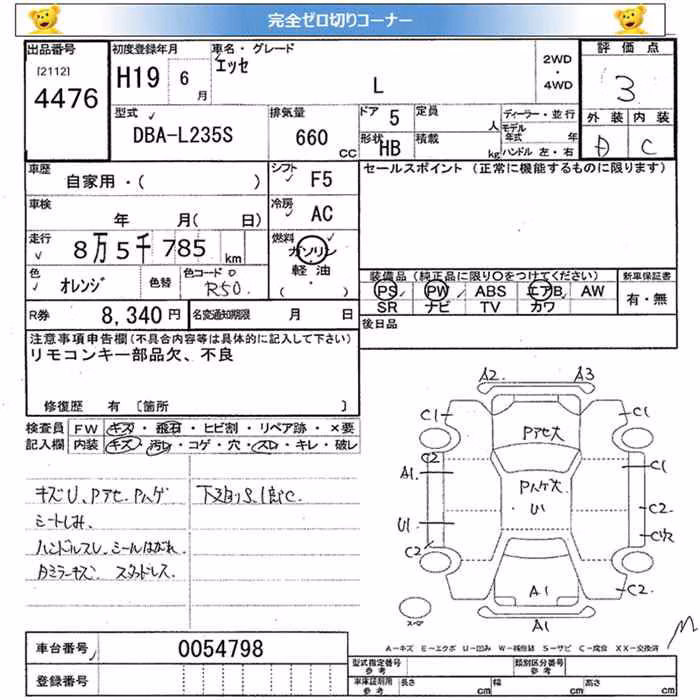 完全ゼロ切りコーナー
出品番号
[2112]
4476
初度登録年月
H19 6月
車名・グレード
エッセ
L
2WD
・
4WD
評価点
3
外装 内装
D C
型式
DBA-L235S
排気量
660 CC
ドア 5
形状 HB
定員 人
積載 kg
ディーラー・並行
モデル年式 年
ハンドル 左・右
車歴
自家用・( )
シフト F5
車検
年 月( 日)
冷房 AC
走行
8万5千785 km
燃料
ガソリン
軽油
( )
色 オレンジ 色替
色コード
R50
R券 8,340円
名変通知期限 月 日
セールスポイント (正常に機能するものに限ります)
装備品(純正品に限り〇をつけてください)
PS PW ABS エアB AW
SR ナビ TV カワ
新車保証書
有・無
後日品
注意事項申告欄(不具合内容等は具体的に記入して下さい)
リモコンキー部品欠、不良
修復歴 有 [箇所 ]
検査員記入欄
FW キズ・飛石・ヒビ割・リペア跡・×要
内装 キズ・汚レ・コゲ・穴・スレ・キレ・破レ
キズU、Pアセ、Pハゲ
シートしみ、
ハンドルスレ、シールはがれ
スタッドレス.
下廻りS、
A2 A3
C1 C1
Pアセ大
C2
A1 C1
Pハゲ大
U1
C2
U1
C2
A1 C2
A1
A-キズ E-エクボ U-凹み W-補修跡 S-サビ C-腐食 XX-交換済
車台番号 0054798
登録番号
型式指定番号 参考
類別区分番号 参考
車庫証明用 参考
長さ cm
幅 cm
高さ cm